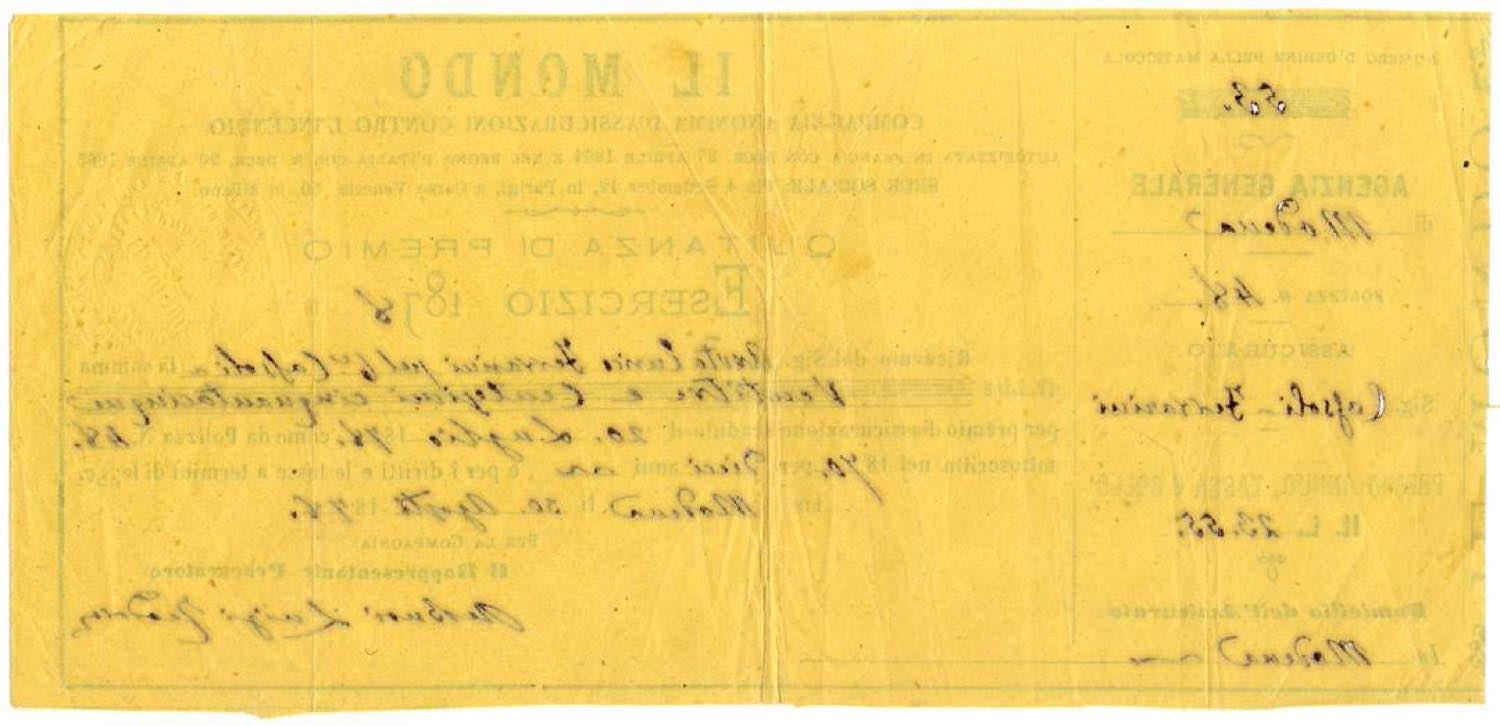 NUMERO D'ORDINE DELLA MATRICOLA
53.
AGENZIA GENERALE
di Modena
POLIZZA N. 48.
ASSICURATO
Sig. Cassoli - Ferrarini
PREMIO ANNUO, TASSA E BOLLO
It. L. 23.55.
Domicilio dell'Assicurato
In Modena
IL MONDO
COMPAGNIA ANONIMA D'ASSICURAZIONI CONTRO L'INCENDIO
AUTORIZZATA IN FRANCIA CON DECR. 27 APRILE 1864 E NEL REGNO D'ITALIA CON R. DECR. 20 APRILE 1865
SEDE SOCIALE Via 4 Settembre 12, in Parigi, e Corso Venezia, 10, in Milano
QUITANZA DI PREMIO
ESERCIZIO 1878
Ricevuto dal Sig. Ferrarini Cassoli la somma
di Lire Ventitre e Centesimi cinquantacinque
per premio d'assicurazione scaduto il 20. Luglio 1878, come da Polizza N. 48.
sottoscritta nel 1870. per Dieci anni, e per i diritti e le tasse a termini di legge.
In Modena li 30. Agosto 1878.
PER LA COMPAGNIA:
Il Rappresentante Procuratore
Luigi